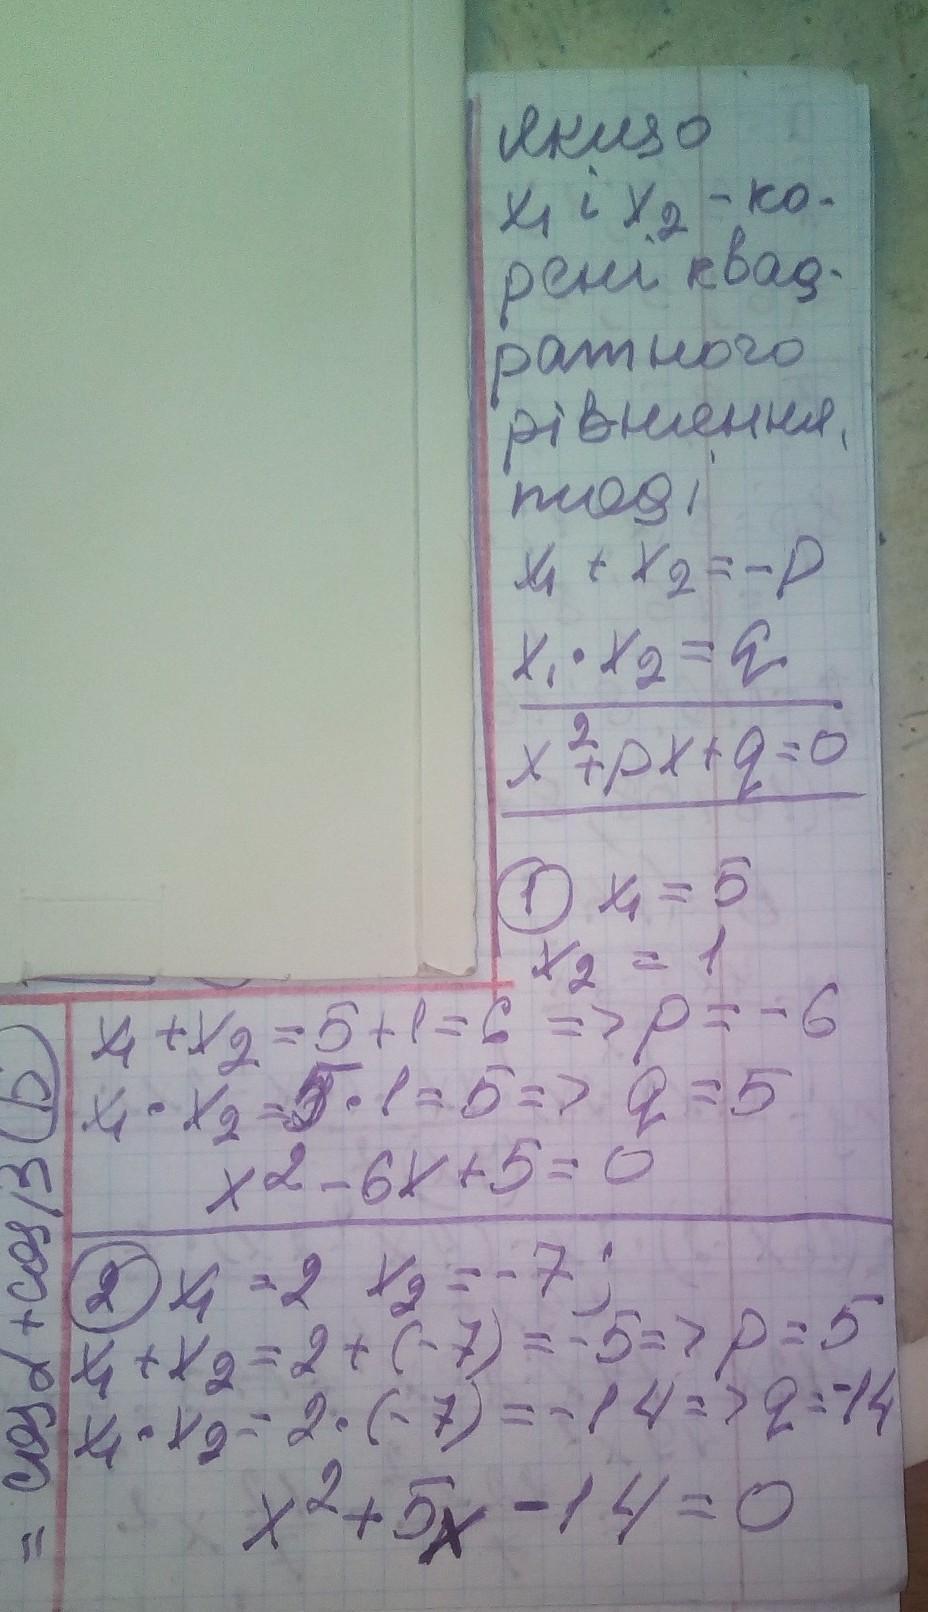 якщо
x₁ і x₂ - ко-
рені квад-
ратного
рівняння,
тоді
x₁ + x₂ = -p
x₁ · x₂ = q
x² + px + q = 0
① x₁ = 5
x₂ = 1
x₁ + x₂ = 5 + 1 = 6 => p = -6
x₁ · x₂ = 5 · 1 = 5 => q = 5
x² - 6x + 5 = 0
② x₁ = 2 x₂ = -7;
x₁ + x₂ = 2 + (-7) = -5 => p = 5
x₁ · x₂ = 2 · (-7) = -14 => q = -14
x² + 5x - 14 = 0
= cos α + cos β